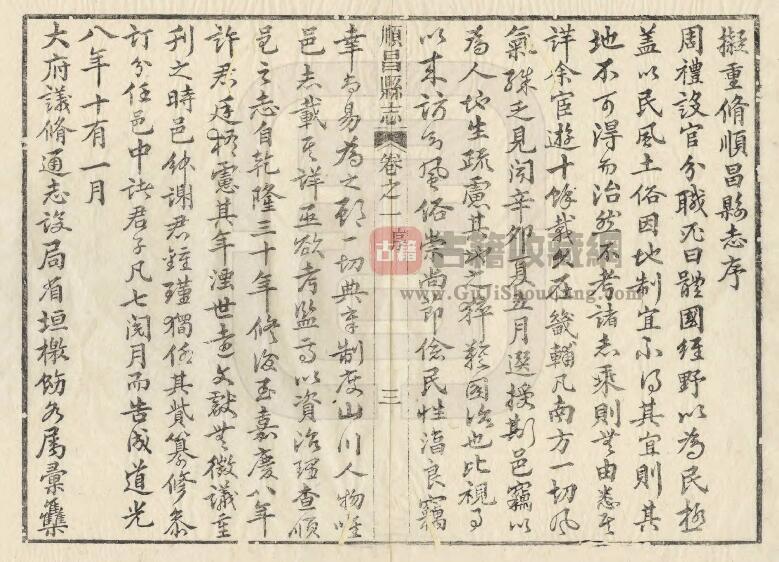 擬重脩順昌縣志序
周禮設官分職而曰體國經野以為民極
蓋以民風土俗因地制宜不得其宜則其
地不可得而治然不考諸志乘則無由悉其
詳余宦遊十餘載久在畿輔凡南方一切風
氣殊乏見聞辛卯夏五月選授斯邑竊以
為人地生疏慮其政之猝難圖治也比視事
以來訪知風俗崇尚節儉民性溫良竊
順昌縣志 卷之一 序 三
幸為易為之顧一切典章制度山川人物唯
邑志載其詳亟欲考鑑焉以資治理查順
邑之志自乾隆三十年修後至嘉慶八年
許君廷梧慮其年湮世遠文獻無徵議重
刊之時邑紳謝君鍾瑾獨任其貲纂修參
訂分任邑中諸君子凡七閱月而告成道光
八年十有一月
大府議脩通志設局省垣檄飭各屬彙集
古籍收藏網
www.GuJiShouCang.com